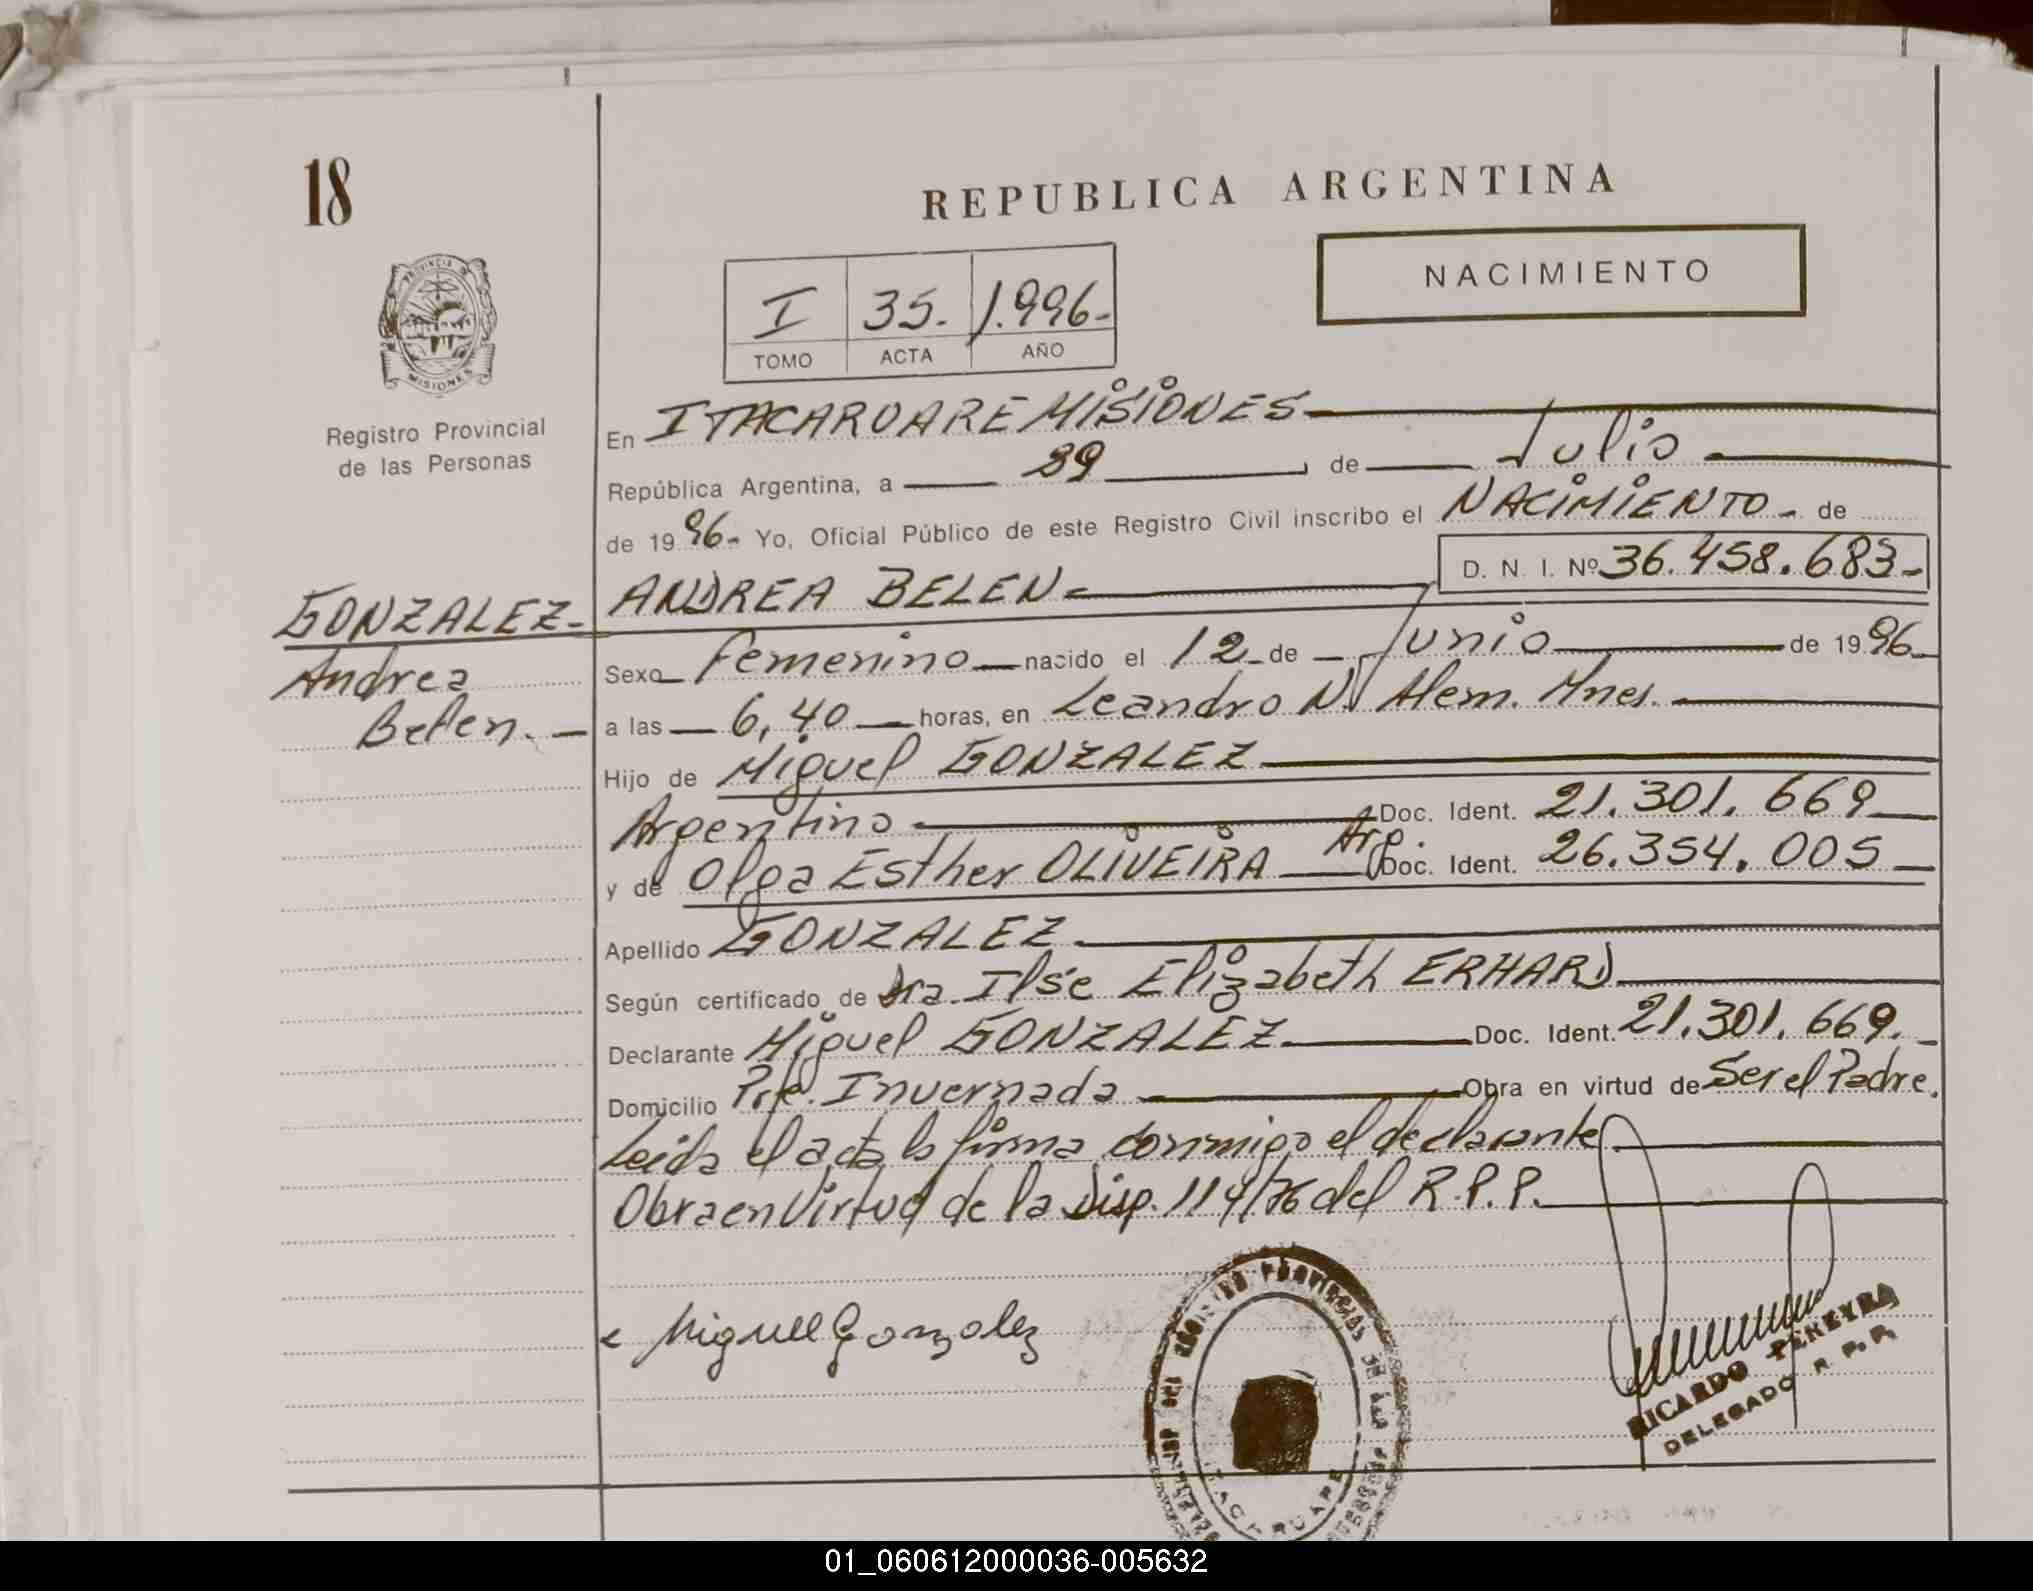 18
REPUBLICA ARGENTINA
NACIMIENTO
I 35. 1.996-
TOMO ACTA AÑO
PROVINCIA DE
MISIONES
Registro Provincial
de las Personas
En ITACARUARE MISIONES
República Argentina, a , de Julio
de 1996- Yo, Oficial Público de este Registro Civil inscribo el NACIMIENTO - de
D. N. I. Nº 36.458.683-
GONZALEZ- ANDREA BELEN-
Andrea
Belen. -
Sexo Femenino nacido el 12 de Junio de 1996
a las 6,40 horas, en Leandro N. Alem. Mnes.
Hijo de Miguel GONZALEZ
Argentino Doc. Ident. 21.301.669
y de Olga Esther OLIVEIRA Arg. Doc. Ident. 26.354.005
Apellido GONZALEZ
Según certificado de Dra. Ilse Elizabeth ERHARD
Declarante Miguel GONZALEZ Doc. Ident. 21.301.669.
Domicilio Pje. Invernada Obra en virtud de Ser el Padre.
Leida el acta la firma conmigo el declarante
Obra en Virtud de la Disp. 114/76 del R.P.P.
Miguel Gonzalez
RICARDO PEREYRA
DELEGADO R. P. P.
ITACARUARE
01_060612000036-005632